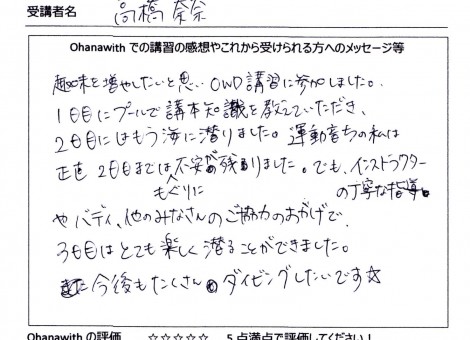 受講者名 高橋奈奈
Ohanawith での講習の感想やこれから受けられる方へのメッセージ等
趣味を増やしたいと思いOWD講習に参加しました。
1日目にプールで講本知識を教えていただき、
2日目にはもう海に潜りました。運動音ちの私は
正直 2日目までは不安が残りました。でも、インストラクター
もぐりに の丁寧な指導
やバディ、他のみなさんのご協力のおかげで、
3日目はとても楽しく潜ることができました。
また今後もたくさんダイビングしたいです☆
Ohanawith の評価 ☆☆☆☆☆ 5点満点で評価してください!